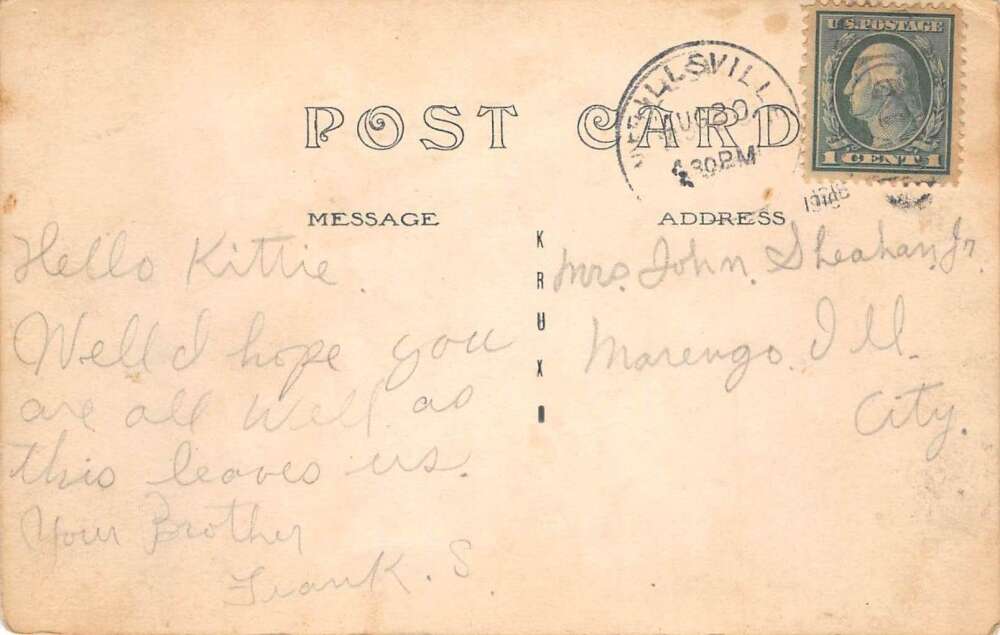 U.S. POSTAGE
1 CENT 1
AUG 30
4 30 PM
POST CARD
MESSAGE
ADDRESS
KRUXO
Hello Kittie.
Well I hope you
are all well as
this leaves us.
Your Brother
Frank. S
Mrs. John. Sheahan, Jr.
Marengo. Ill.
City.